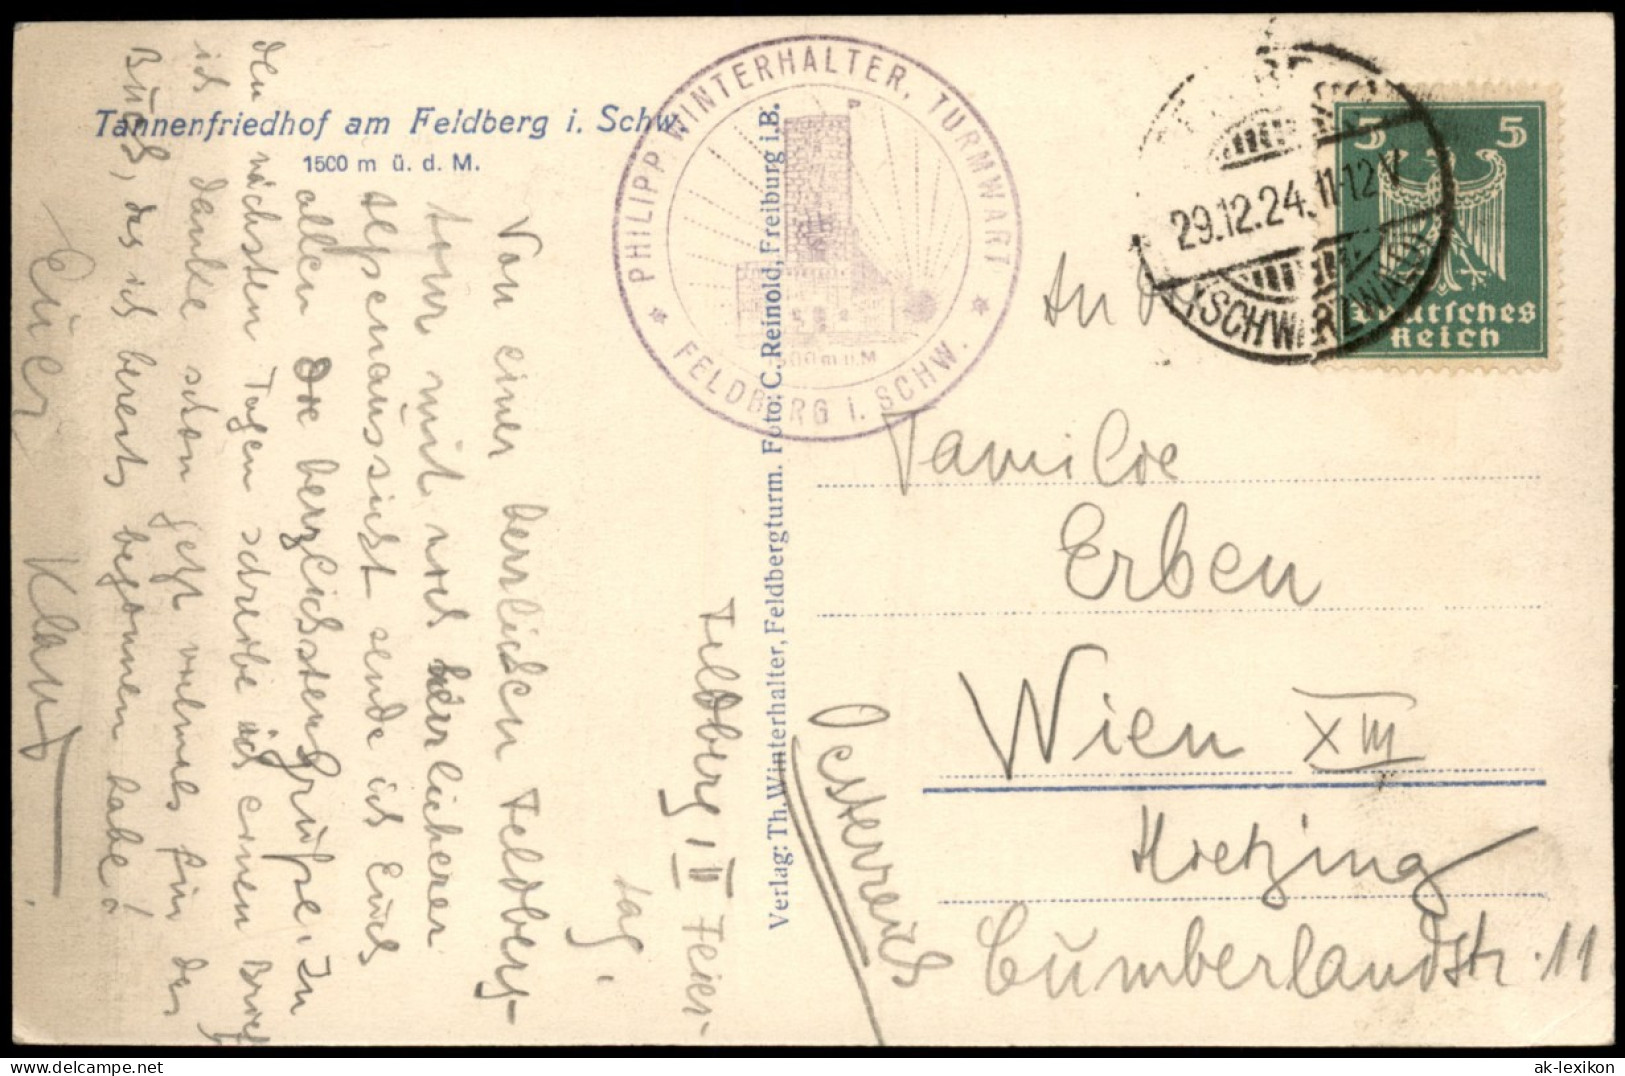 Tannenfriedhof am Feldberg i. Schw.
1500 m ü. d. M.
PHILIPP WINTERHALTER, TURMWART
* FELDBERG i. SCHW. *
1500 m ü. M
Verlag: Th. Winterhalter, Feldbergturm. Foto: C. Reinold, Freiburg i. B.
29.12.24. 11-12 V
(SCHWARZWALD)
5 5
Deutsches
Reich
Feldberg, II Feier-
tag.
Von einer herrlichen Feldberg-
tour mit noch herrlicherer
Alpenaussicht sende ich Euch
allen die herzlichsten Grüsse. In
den nächsten Tagen schreibe ich einen Brief
ich danke schon jetzt vielmals für das
Buch, das ich bereits begonnen habe!
Euer Klaus.
An
Familie
Erben
Wien XIII
Hietzing
Cumberlandstr. 11
Oesterreich
ak-lexikon